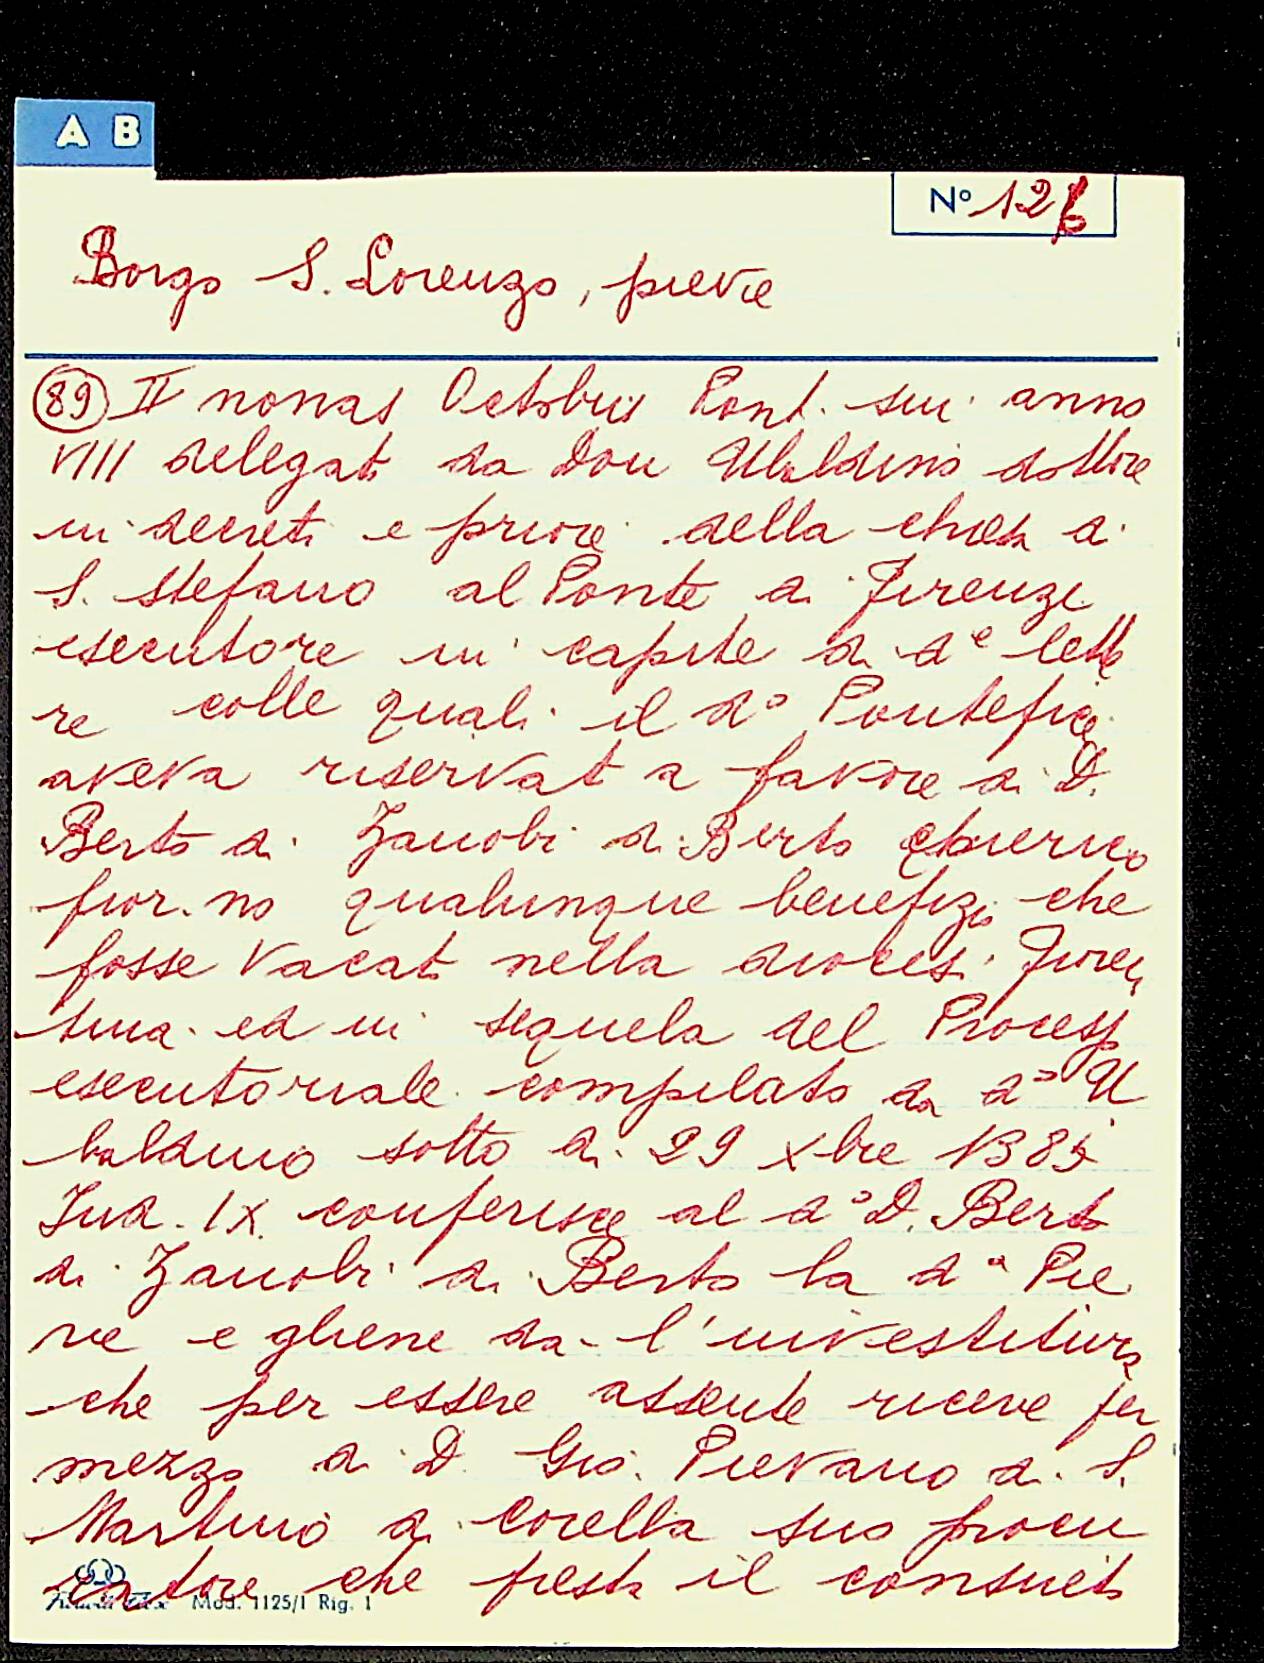 A B
Nº 126
Borgo S. Lorenzo, pieve
89 II nonas Octobris Pont. sui anno
VIII delegato da Don Ubaldino dottore
in decreti e priore della chiesa di
S. Stefano al Ponte di Firenze
esecutore in capite di de lette
re colle quali il do Pontefice
aveva riservato a favore di D.
Berto di Zanobi di Berto chierico
fior.no qualunque benefizio che
fosse vacato nella diocesi Fioren
tina ed in sequela del Processo
esecutoriale compilato da do U
baldino sotto di 29 xbre 1385
Ind. IX conferisce al do D. Berto
di Zanobi di Berto la da Pie
ve e gliene da l'investitura
che per essere assente riceve per
mezzo di D. Gio. Pievano di S.
Martino a Corella suo procu
ratore che presta il consueto
Mod. 1125/1 Rig. 1